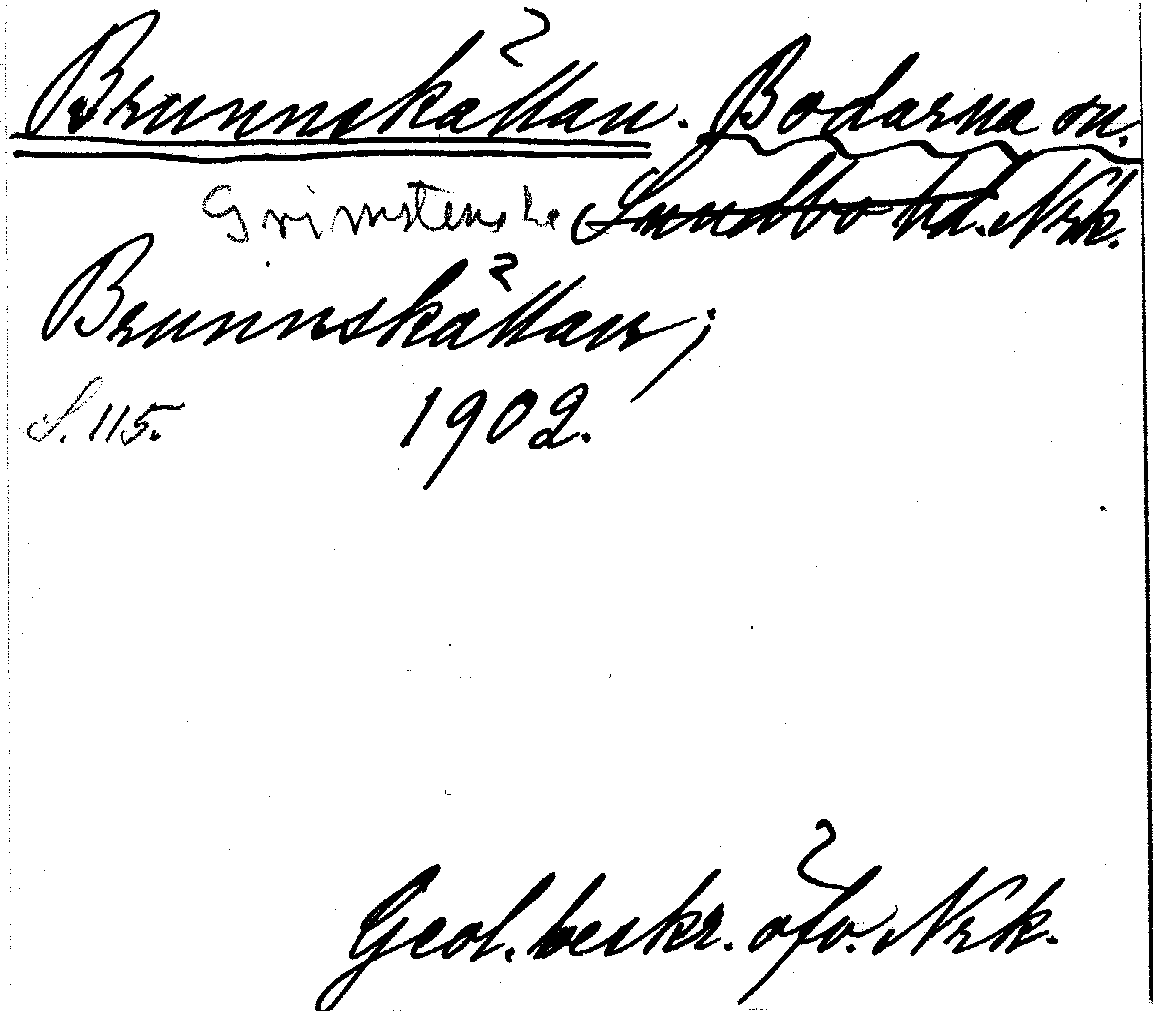 Brunnskällan. Bodarna sn.
Grimstens hd Sundbo hd. Nrk.
Brunnskällan;
S. 115. 1902.
Geol. beskr. öfv. Nrk.